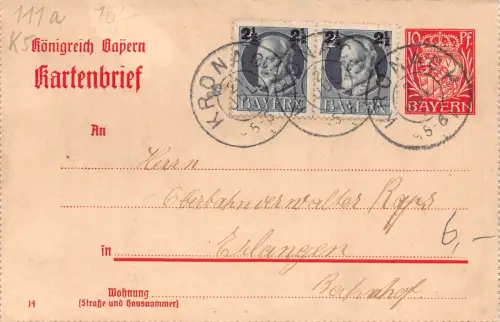 111a 10'-
K5
Königreich Bayern
Kartenbrief
2½ 2½
BAYERN BAYERN
10 Pf
BAYERN
KRONA
An
Herrn
Oberbahnverwalter Raps
6,-
in Erlangen
Bahnhof.
Wohnung
(Straße und Hausnummer)
14